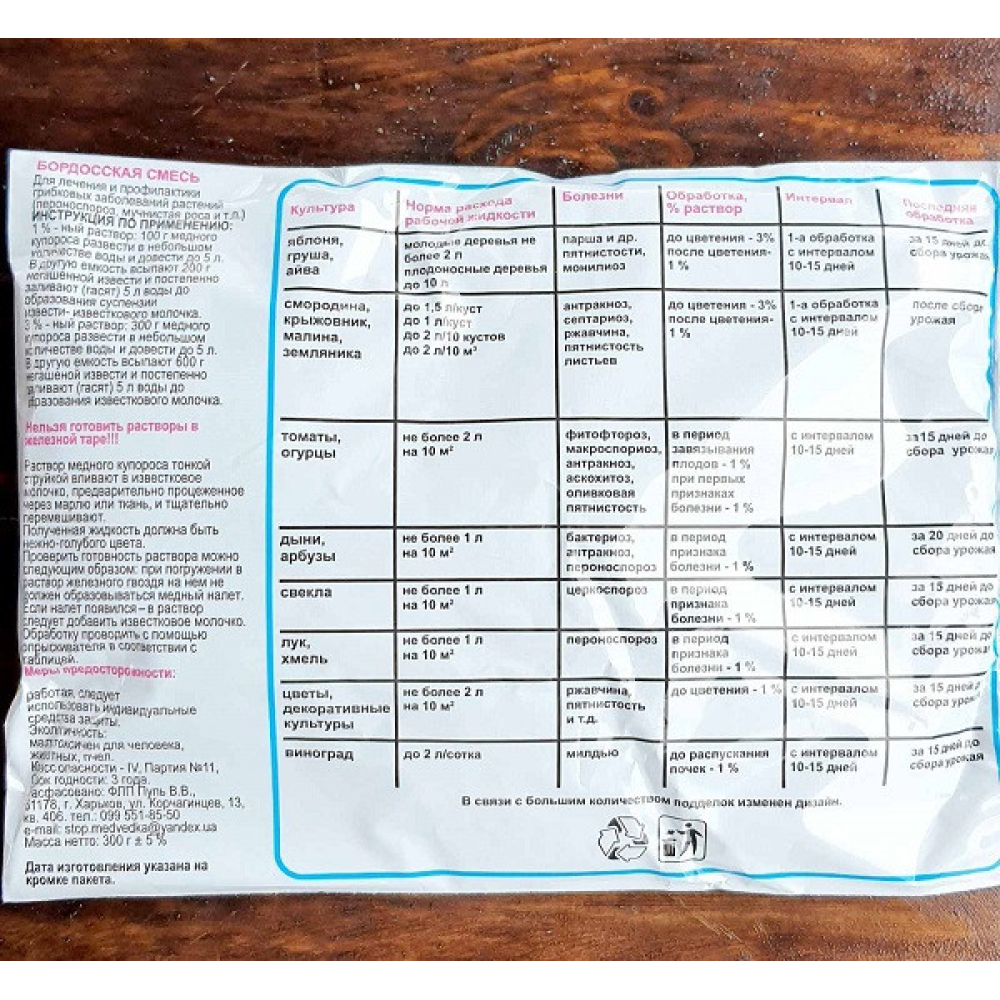 БОРДОССКАЯ СМЕСЬ
Для лечения и профилактики
грибковых заболеваний растений
(пероноспороз, мучнистая роса и т.п.)
ИНСТРУКЦИЯ ПО ПРИМЕНЕНИЮ:
1 % - ный раствор: 100 г медного
купороса развести в небольшом
количестве воды и довести до 5 л.
В другую емкость всыпают 200 г
негашённой извести и постепенно
заливают (гасят) 5 л воды до
образования суспензии
извести- известкового молочка.
3 % - ный раствор: 300 г медного
купороса развести в небольшом
количестве воды и довести до 5 л.
В другую емкость всыпают 600 г
негашёной извести и постепенно
заливают (гасят) 5 л воды до
образования известкового молочка.
Нельзя готовить растворы в
железной таре!!!
Раствор медного купороса тонкой
струйкой вливают в известковое
молочко, предварительно процеженное
через марлю или ткань, и тщательно
перемешивают.
Полученная жидкость должна быть
нежно-голубого цвета.
Проверить готовность раствора можно
следующим образом: при погружении в
раствор железного гвоздя на нем не
должен образовываться медный налет.
Если налет появился – в раствор
следует добавить известковое молочко.
Обработку проводить с помощью
опрыскивателя в соответствии с
таблицей.
Меры предосторожности:
работая, следует
использовать индивидуальные
средства защиты.
Экологичность:
малтоксичен для человека,
животных, пчел.
Класс опасности - IV, Партия №11,
Срок годности: 3 года.
Расфасовано: ФЛП Пуль В.В.,
61178, г. Харьков, ул. Корчагинцев, 13,
кв. 406. тел.: 099 551-85-50
e-mail: stop.medvedka@yandex.ua
Масса нетто: 300 г ± 5 %
Дата изготовления указана на
кромке пакета.
Культура Норма расхода рабочей жидкости Болезни Обработка, % раствор Интервал Последняя обработка
яблоня, молодые деревья не парша и др. до цветения - 3% 1-а обработка за 15 дней до
груша, более 2 л пятнистости, после цветения- с интервалом сбора урожая
айва плодоносные деревья монилиоз 1 % 10-15 дней
до 10 л
смородина, до 1,5 л/куст антракноз, до цветения - 3% 1-а обработка после сбора
крыжовник, до 1 л/куст септариоз, после цветения- с интервалом урожая
малина, до 2 л/10 кустов ржавчина, 1 % 10-15 дней
земляника до 2 л/10 м² пятнистость
листьев
томаты, не более 2 л фитофтороз, в период с интервалом за15 дней до
огурцы на 10 м² макроспориоз, завязывания 10-15 дней сбора урожая
антракноз, плодов - 1 %
аскохитоз, при первых
оливковая признаках
пятнистость болезни - 1 %
дыни, не более 1 л бактериоз, в период с интервалом за 20 дней до
арбузы на 10 м² антракноз, признака 10-15 дней сбора урожая
пероноспороз болезни - 1 %
свекла не более 1 л церкоспороз в период с интервалом за 15 дней до
на 10 м² признака 10-15 дней сбора урожая
болезни - 1 %
лук, не более 1 л пероноспороз в период с интервалом за 15 дней до
хмель на 10 м² признака 10-15 дней сбора урожая
болезни - 1 %
цветы, не более 2 л ржавчина, до цветения - 1 % с интервалом за 15 дней
декоративные на 10 м² пятнистость 10-15 дней сбора
культуры и т.д.
виноград до 2 л/сотка милдью до распускания с интервалом за 15 дней до
почек - 1 % 10-15 дней сбора урожая
В связи с большим количеством подделок изменен дизайн.